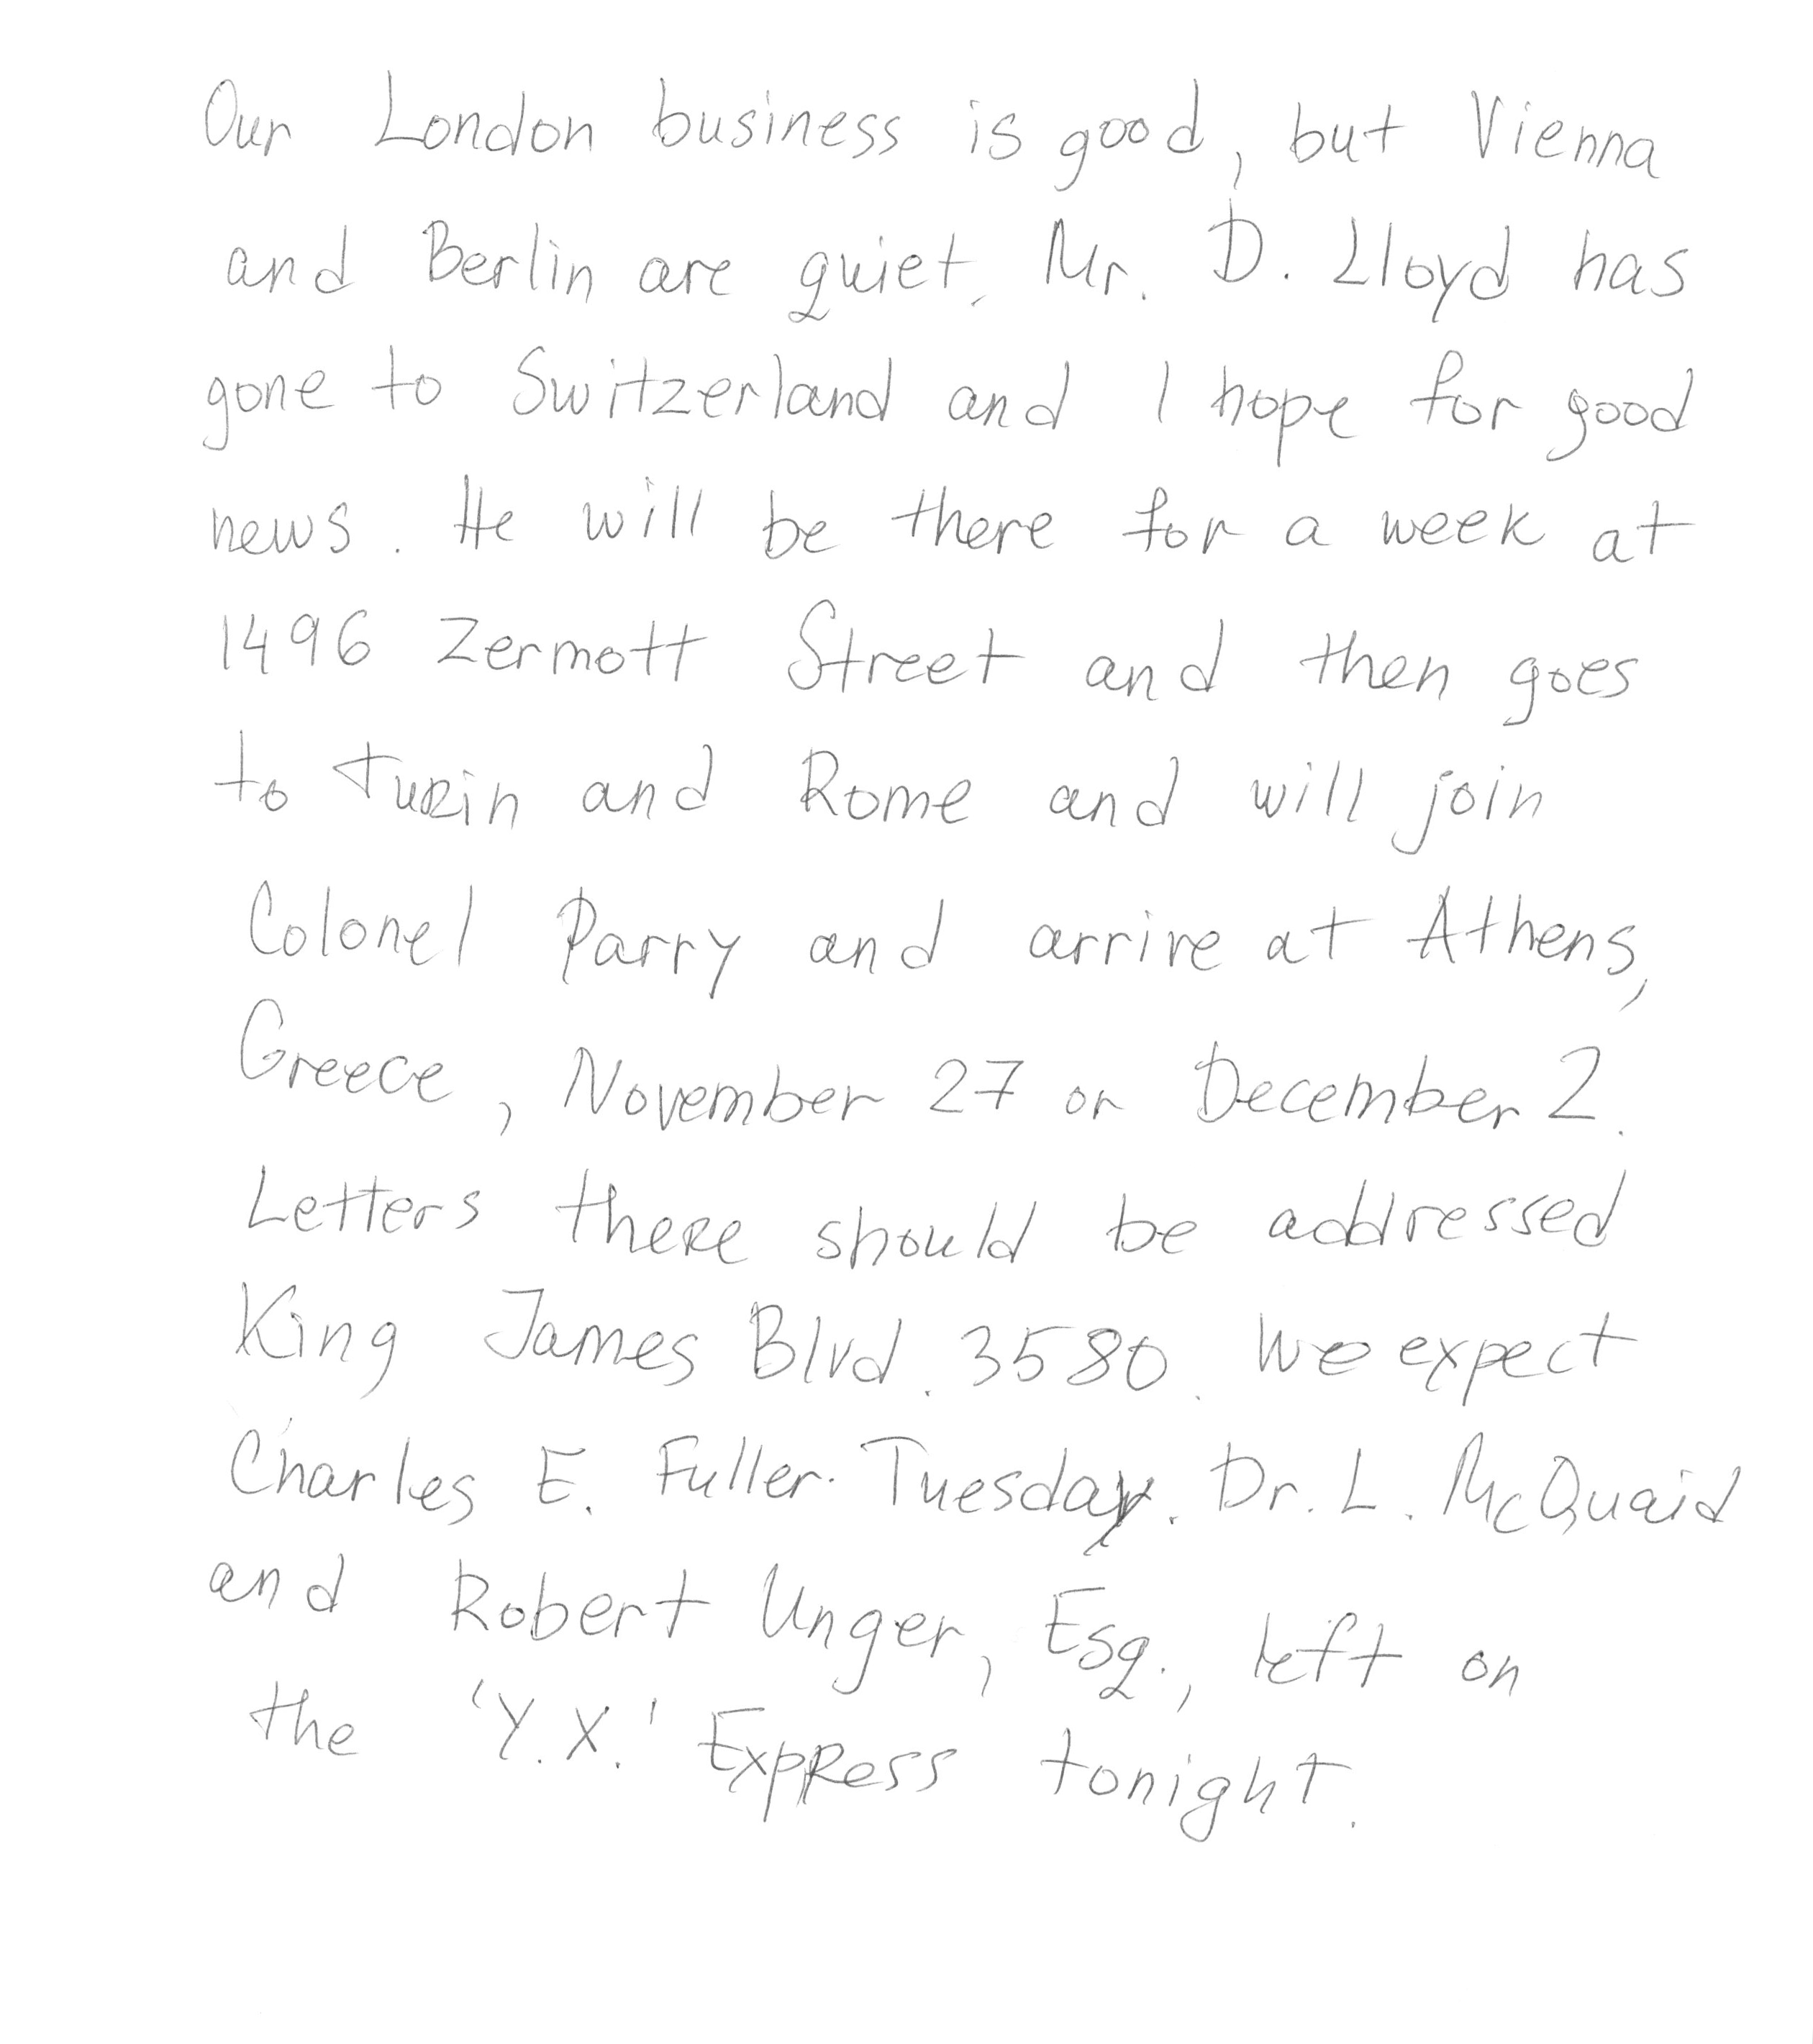 Our London business is good, but Vienna
and Berlin are quiet. Mr. D. Lloyd has
gone to Switzerland and I hope for good
news. He will be there for a week at
1496 Zermott Street and then goes
to Turin and Rome and will join
Colonel Parry and arrive at Athens,
Greece, November 27 or December 2.
Letters there should be addressed
King James Blvd. 3580. We expect
Charles E. Fuller. Tuesday. Dr. L. McQuaid
and Robert Unger, Esq., left on
the 'Y.X.' Express tonight.